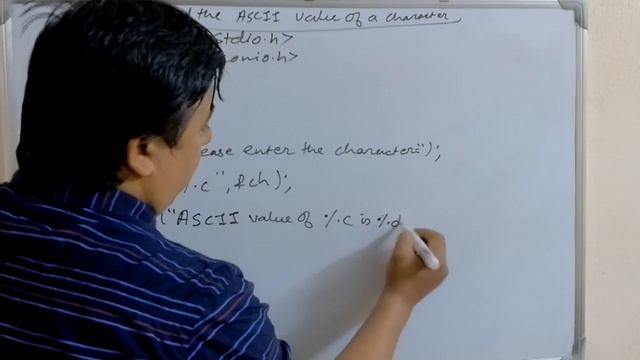 the ASCII value of a character
stdio.h>
conio.h>
ease enter the character=");
%c", &ch);
("ASCII value of %c is %d